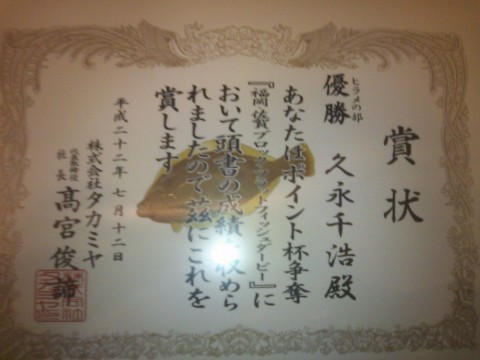 賞状
ヒラメの部
優勝 久永千浩殿
あなたはポイント杯争奪
『福岡佐賀ブロックフラットフィッシュダービー』に
おいて頭書の成績を収めら
れましたので茲にこれを
賞します
平成二十二年七月十二日
株式会社タカミヤ
代表取締役
社長 髙宮俊諦